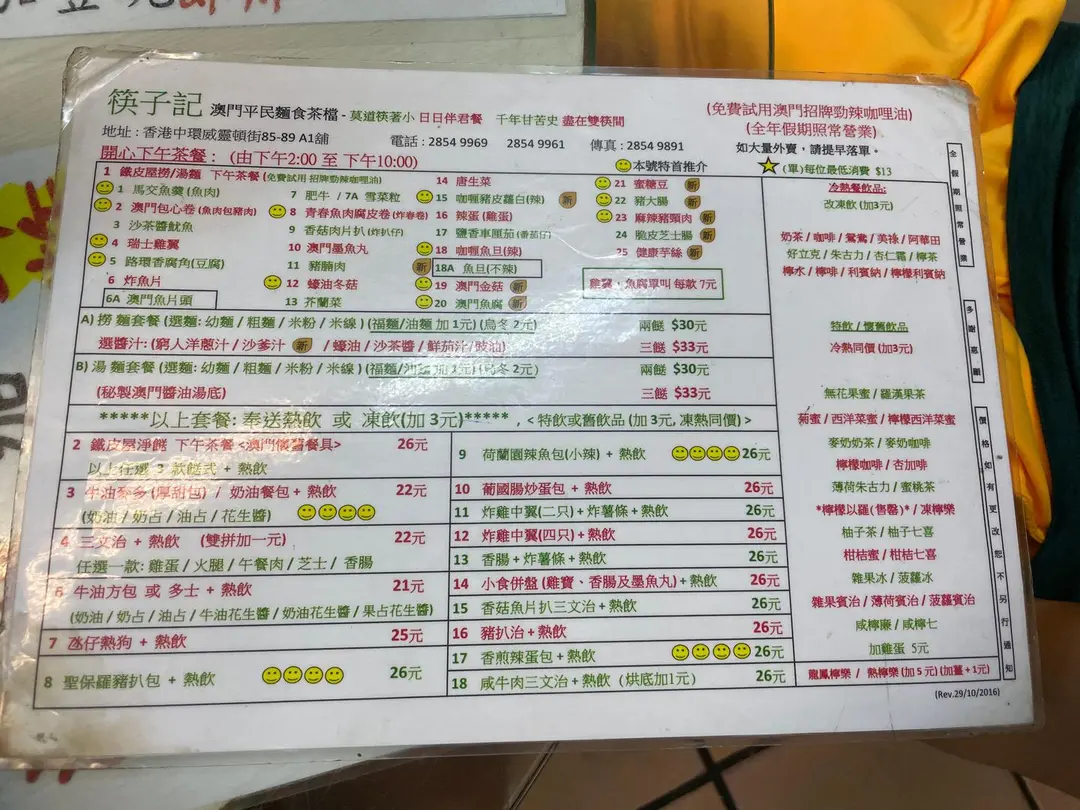 筷子記 澳門平民麵食茶檔 - 莫道筷著小 日日伴君餐 千年甘苦史 盡在雙筷間
(免費試用澳門招牌勁辣咖哩油)
(全年假期照常營業)
地址 : 香港中環威靈頓街85-89 A1舖 電話 : 2854 9969 2854 9961 傳真 : 2854 9891
如大量外賣, 請提早落單。
開心下午茶餐 : (由下午2:00 至 下午10:00)
本號特首推介
(單)每位最低消費 $13
1 鐵皮屋撈/湯麵 下午茶餐 (免費試用 招牌勁辣咖哩油)
1 馬交魚羹 (魚肉)
2 澳門包心卷 (魚肉包豬肉)
3 沙茶醬魷魚
4 瑞士雞翼
5 路環香腐角(豆腐)
6 炸魚片
6A 澳門魚片頭
7 肥牛 / 7A 雪菜粒
8 青春魚肉腐皮卷 (炸春卷)
9 香菇肉片扒 (炸扒仔)
10 澳門墨魚丸
11 豬腩肉
12 蠔油冬菇
13 芥蘭菜
14 唐生菜
15 咖喱豬皮蘿白(辣) 新
16 辣蛋 (雞蛋)
17 鹽香車厘茄 (番茄仔)
18 咖喱魚旦(辣)
新 18A 魚旦(不辣)
19 澳門金菇 新
20 澳門魚腐 新
21 蜜糖豆 新
22 豬大腸 新
23 麻辣豬頸肉 新
24 脆皮芝士腸 新
25 健康芋絲 新
雞翼、魚腐單叫 每款 7元
A) 撈 麵套餐 (選麵: 幼麵 / 粗麵 / 米粉 / 米線 ) (福麵/油麵 加 1元) (烏冬 2元) 兩餸 $30元
選醬汁: (窮人洋蔥汁 / 沙爹汁 新 / 蠔油 / 沙茶醬 / 鮮茄汁 /豉油) 三餸 $33元
B) 湯 麵套餐 (選麵: 幼麵 / 粗麵 / 米粉 / 米線 ) (福麵/油麵 加 1元) (烏冬 2元) 兩餸 $30元
(秘製澳門醬油湯底) 三餸 $33元
*****以上套餐: 奉送熱飲 或 凍飲(加 3元)***** , < 特飲或舊飲品 (加 3元, 凍熱同價) >
2 鐵皮屋淨餸 下午茶餐 <澳門儀舊餐具> 26元
以上任選 3 款餸式 + 熱飲
3 牛油多多 (厚甜包) / 奶油餐包 + 熱飲 22元
(奶油 / 奶占 / 油占 / 花生醬)
4 三文治 + 熱飲 (雙拼加一元) 22元
任選一款: 雞蛋 / 火腿 / 午餐肉 / 芝士 / 香腸
6 牛油方包 或 多士 + 熱飲 21元
(奶油 / 奶占 / 油占 / 牛油花生醬 / 奶油花生醬 / 果占花生醬)
7 氹仔熱狗 + 熱飲 25元
8 聖保羅豬扒包 + 熱飲 26元
9 荷蘭園辣魚包(小辣) + 熱飲 26元
10 葡國腸炒蛋包 + 熱飲 26元
11 炸雞中翼(二只) + 炸薯條 + 熱飲 26元
12 炸雞中翼(四只) + 熱飲 26元
13 香腸 + 炸薯條 + 熱飲 26元
14 小食併盤 (雞寶、香腸及墨魚丸) + 熱飲 26元
15 香菇魚片扒三文治 + 熱飲 26元
16 豬扒治 + 熱飲 26元
17 香煎辣蛋包 + 熱飲 26元
18 咸牛肉三文治 + 熱飲 (烘底加1元) 26元
冷熱餐飲品:
改凍飲 (加3元)
奶茶 / 咖啡 / 鴛鴦 / 美祿 / 阿華田
好立克 / 朱古力 / 杏仁霜 / 檸茶
檸水 / 檸啡 / 利賓納 / 檸檬利賓納
特飲 / 懷舊飲品
冷熱同價 (加3元)
無花果蜜 / 羅漢果茶
菊蜜 / 西洋菜蜜 / 檸檬西洋菜蜜
麥奶奶茶 / 麥奶咖啡
檸檬咖啡 / 杏加啡
薄荷朱古力 / 蜜桃茶
*檸檬以羅 (售罄)* / 凍檸樂
柚子茶 / 柚子七喜
柑桔蜜 / 柑桔七喜
雜果冰 / 菠蘿冰
雜果賓治 / 薄荷賓治 / 菠蘿賓治
咸檸廉 / 咸檸七
加雞蛋 5元
龍鳳檸樂 / 熱檸樂 (加 5 元) (加薑 + 1元)
全假期照常營業
多謝惠顧
價格如有更改恕不另行通知
(Rev.29/10/2016)